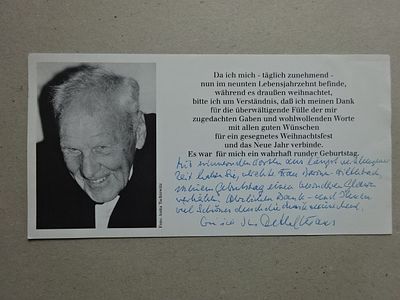 Da ich mich - täglich zunehmend -
nun im neunten Lebensjahrzehnt befinde,
während es draußen weihnachtet,
bitte ich um Verständnis, daß ich meinen Dank
für die überwältigende Fülle der mir
zugedachten Gaben und wohlwollenden Worte
mit allen guten Wünschen
für ein gesegnetes Weihnachtsfest
und das Neue Jahr verbinde.
Es war für mich ein wahrhaft runder Geburtstag.
Mit Worten aus längst
Zeit haben Sie, verehrte Frau
meinem Geburtstag einen besonderen Glanz
verliehen. Herzlichen Dank - und Ihnen
viel Schönes
Ihr